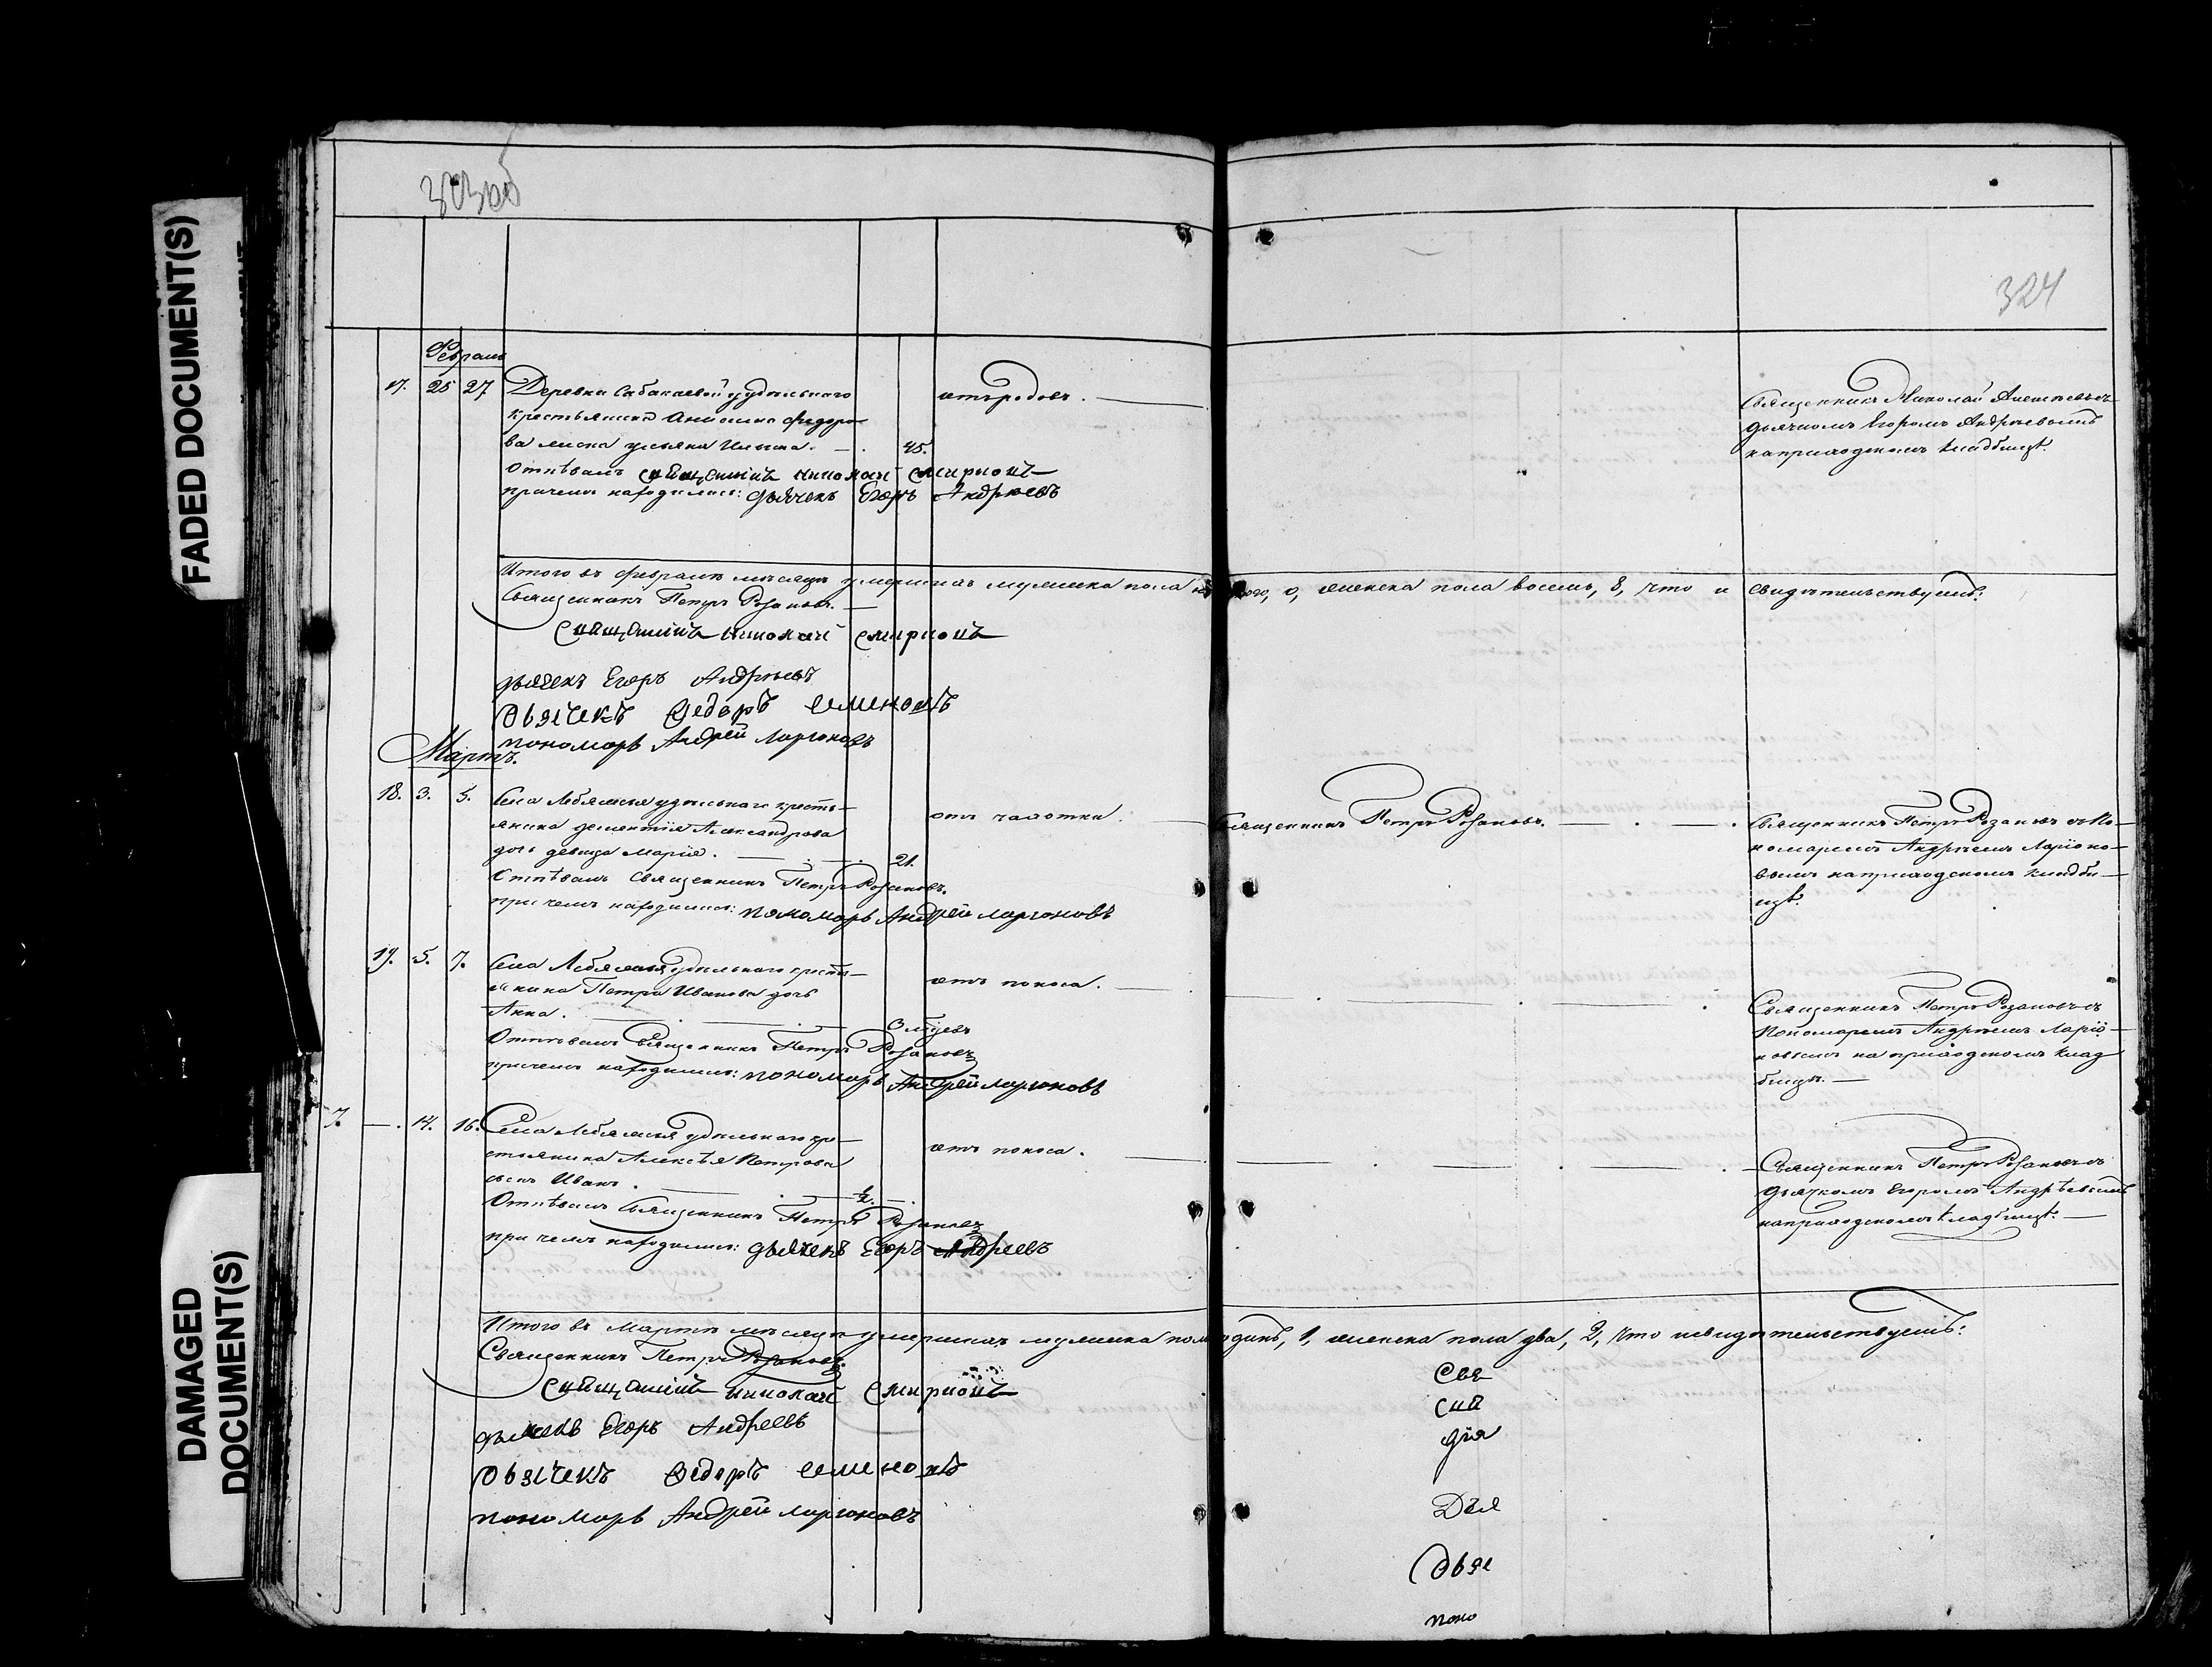 FADED DOCUMENT(S)
DAMAGED DOCUMENT(S)
323об
324
Февраль
17. 25 27 Деревни Сабакаевой удѣльнаго
крестьянина Федоро-
ва жена Ульяна Ильина. 45.
отъ родовъ.
Священникъ Николай
дьячкомъ Егоромъ Андреевымъ
на приходскомъ кладбищѣ.
Отпѣвалъ священникъ Николай Смирновъ
при чемъ находился: дьячекъ Егоръ Андреевъ
Итого въ февралѣ мѣсяцѣ умершихъ мужеска пола никого, 0, женска пола восемь, 8, что и свидѣтельствуемъ:
Священникъ Петръ Розановъ.
Священникъ Николай Смирновъ
дьячекъ Егоръ Андреевъ
Дьячекъ Федоръ Семеновъ
пономарь Андрей Ларионовъ
Мартъ.
18. 3. 5. Села Лебяжья удѣльнаго кресть-
янина Дементія Александрова
дочь девица Марія. 21.
отъ чахотки.
Священникъ Петръ Розановъ.
Священникъ Петръ Розановъ съ По-
номаремъ Андреемъ Ларіоно-
вымъ на приходскомъ кладби-
щѣ.
Отпѣвалъ Священникъ Петръ Розановъ.
при чемъ находился: пономарь Андрей Ларионовъ
19. 5. 7. Села Лебяжья удѣльнаго кресть-
янина Петра Иванова дочь
Анна. 3 мѣсяцевъ
отъ поноса.
Священникъ Петръ Розановъ съ
Пономаремъ Андреемъ Ларіо-
новымъ на приходскомъ клад
бищѣ.
Отпѣвалъ Священникъ Петръ Розановъ
при чемъ находился: пономарь Андрей Ларионовъ
7. 14. 16. Села Лебяжья удѣльнаго кре-
стьянина Алексѣя Петрова
сынъ Иванъ. ½.
отъ поноса.
Священникъ Петръ Розановъ съ
дьячкомъ Егоромъ Андрѣевымъ
на приходскомъ кладбищѣ.
Отпѣвалъ Священникъ Петръ Розановъ
при чемъ находился: дьячекъ Егоръ Андреевъ
Итого въ Мартѣ мѣсяцѣ умершихъ мужеска пола одинъ, 1, женска пола два, 2, что и свидѣтельствуемъ:
Священникъ Петръ Розановъ.
Священникъ Николай Смирновъ
дьячекъ Егоръ Андреевъ
Дьячекъ Федоръ Семеновъ
пономарь Андрей Ларионовъ
Свя
Свя
дія
Дья
Дьяе
поно